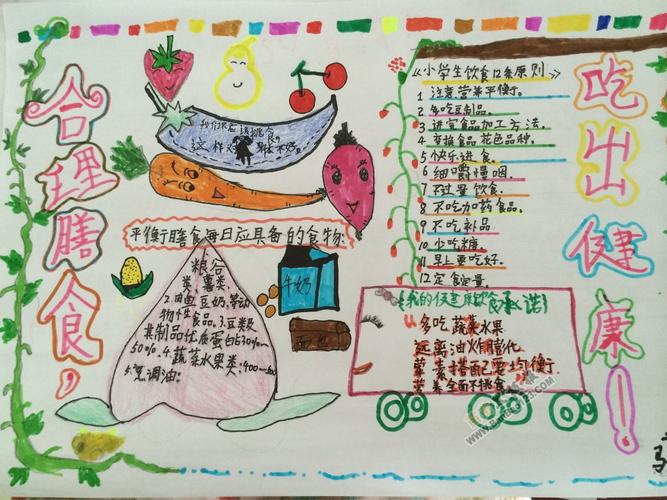 合理膳食，
吃出健康！
我们不应该挑食
这样对身体不好。
平衡膳食每日应具备的食物：
1.粮谷
类、薯类
2.由鱼豆奶等动
物性食品。3.豆类及
其制品优质蛋白占30%—
50%.4.蔬菜水果类：400—
5.烹调油。
牛奶
面包
《小学生饮食12条原则》
1 注意营养平衡。
2 多吃豆制品。
3 讲究食品加工方法。
4 变换食品花色品种。
5 快乐进食。
6 细嚼慢咽。
7 不过量饮食。
8 不吃加药食品。
9 不吃补品
10 少吃糖。
11 早上要吃好。
12 定食定量。
我的健康饮食承诺
多吃蔬菜水果
远离油炸膨化
荤素搭配要均衡
营养全面不挑食